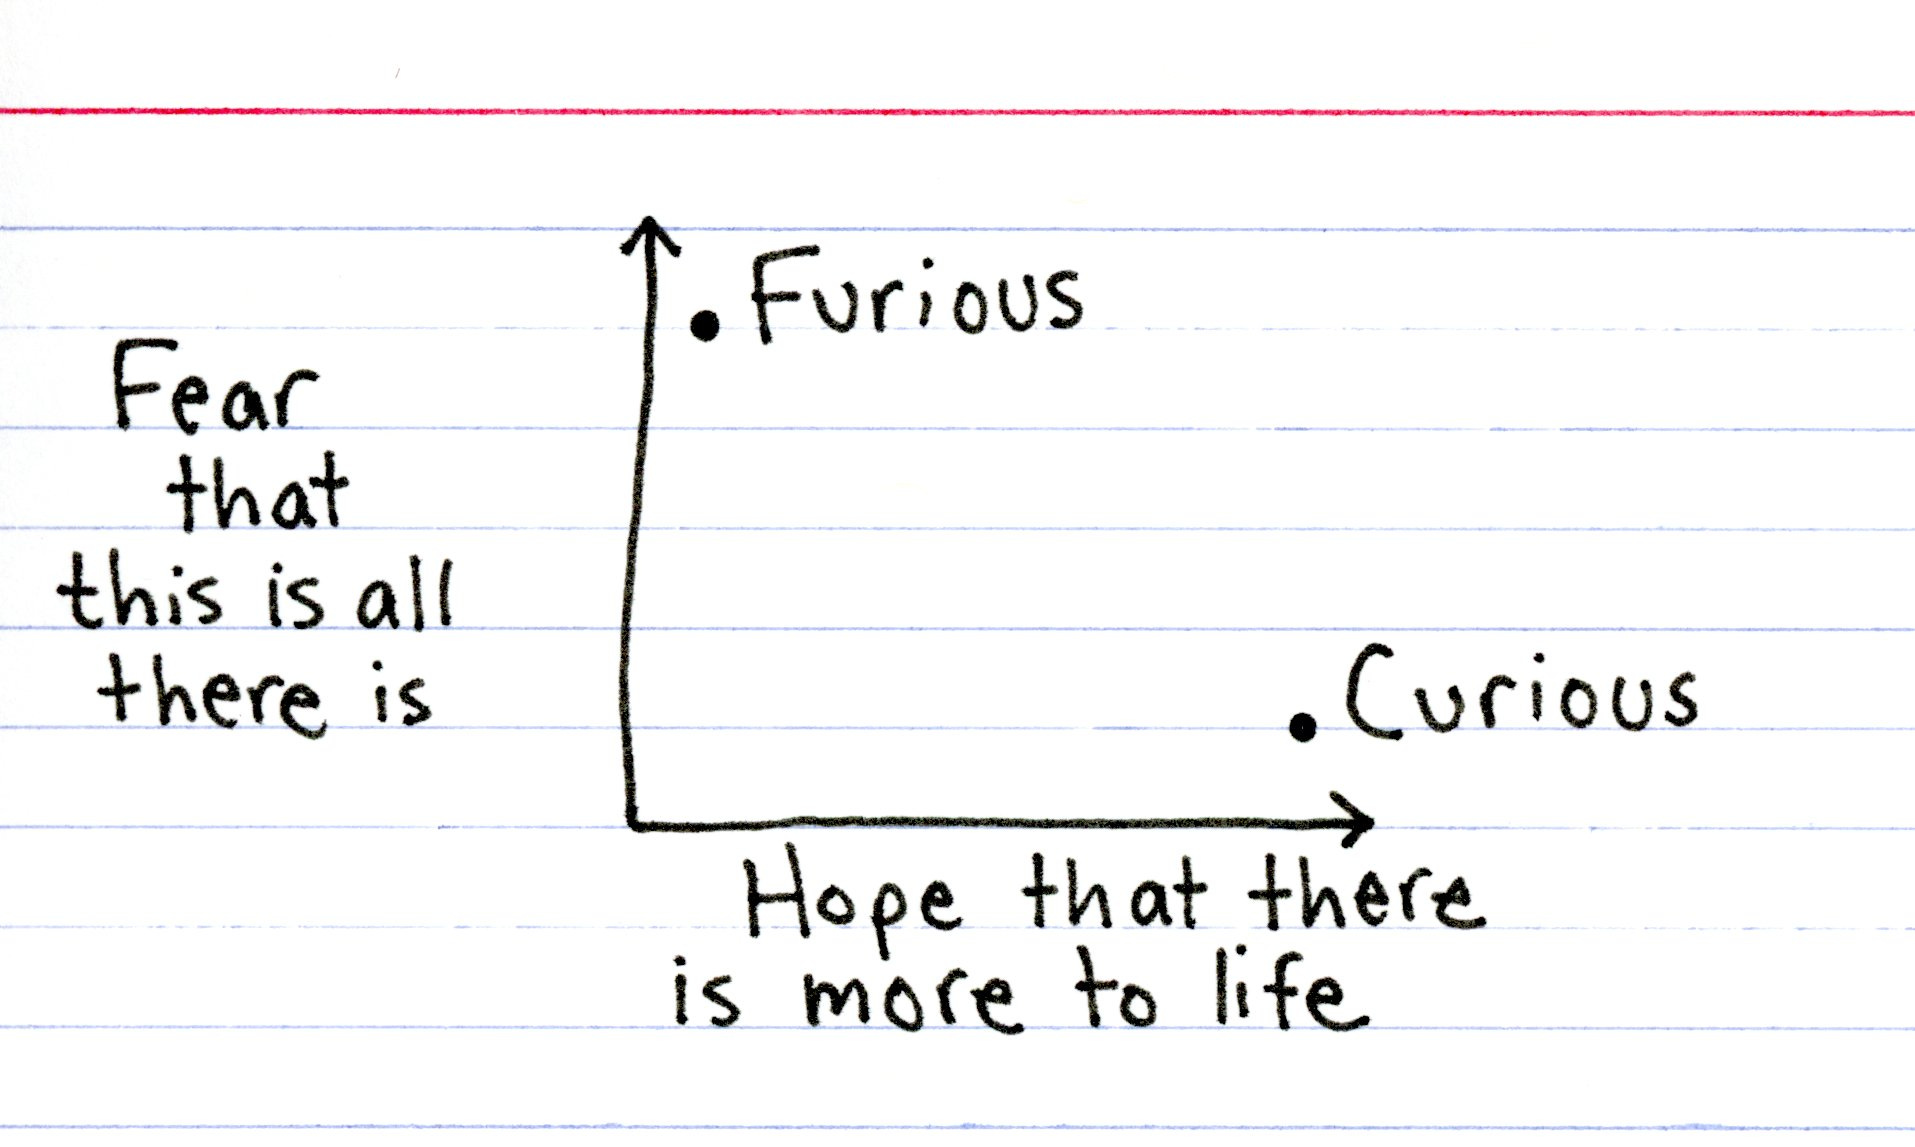 Furious
Fear
that
this is all
there is
Curious
Hope that there
is more to life